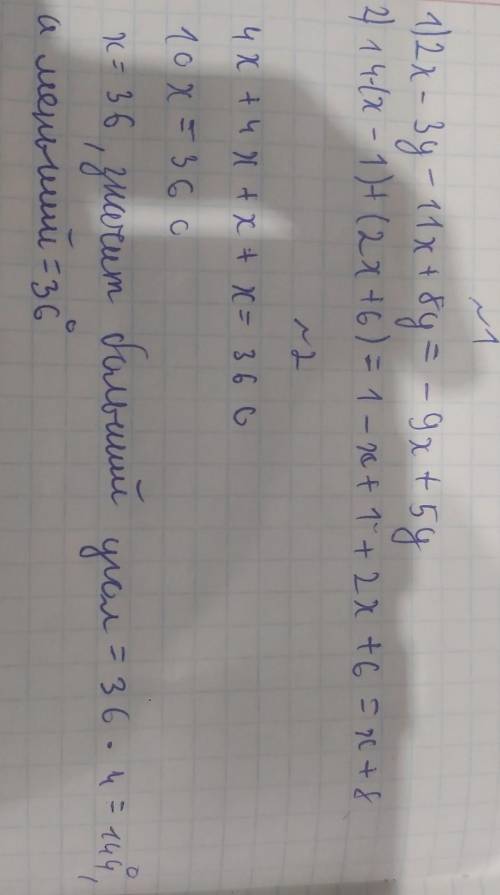 ~1
1) 2x - 3y - 11x + 8y = - 9x + 5y
2) 14-(x - 1) + (2x + 6) = 1 - x + 1 + 2x + 6 = x + 8
~2
4x + 4x + x + x = 360
10x = 360
x = 36, значит больший угол = 36 · 4 = 144°,
а меньший = 36°